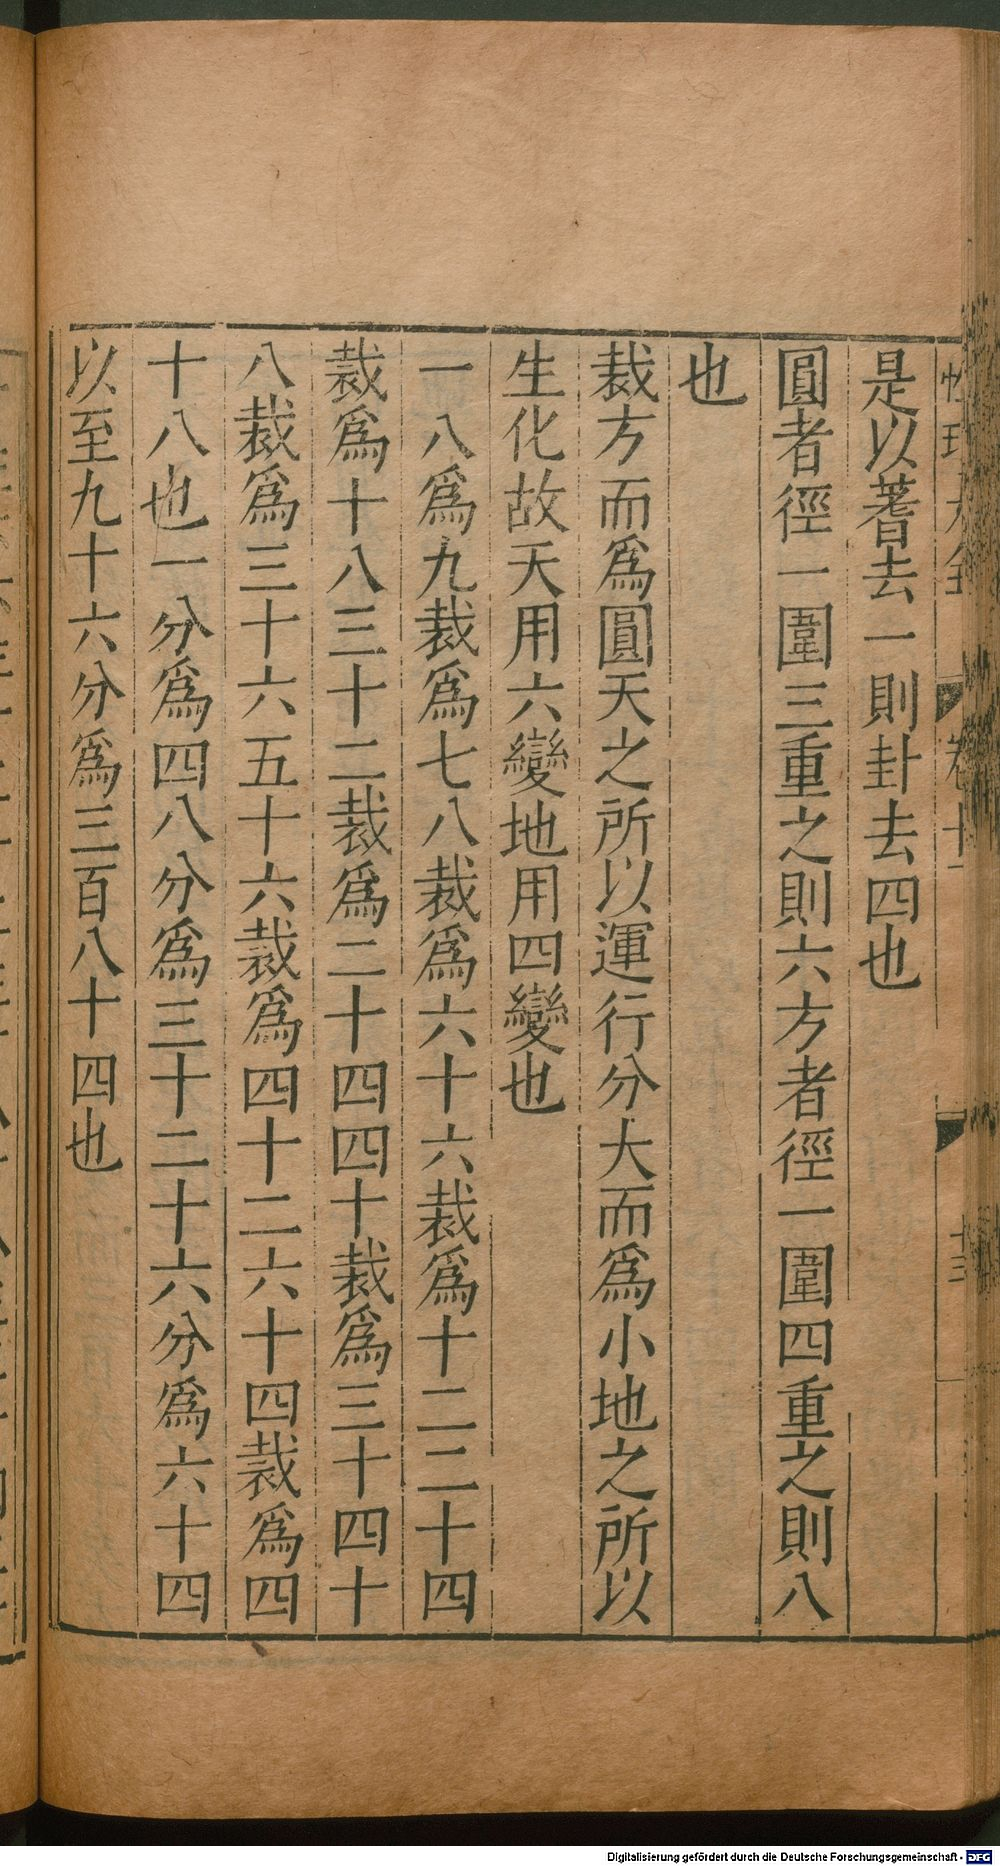 是以蓍去一則卦去四也
圓者徑一圍三重之則六方者徑一圍四重之則八
也
裁方而爲圓天之所以運行分大而爲小地之所以
生化故天用六變地用四變也
一八爲九裁爲七八裁爲六十六裁爲十二二十四
裁爲十八三十二裁爲二十四四十裁爲三十四十
八裁爲三十六五十六裁爲四十二六十四裁爲四
十八也一分爲四八分爲三十二十六分爲六十四
以至九十六分爲三百八十四也
Digitalisierung gefördert durch die Deutsche Forschungsgemeinschaft - DFG